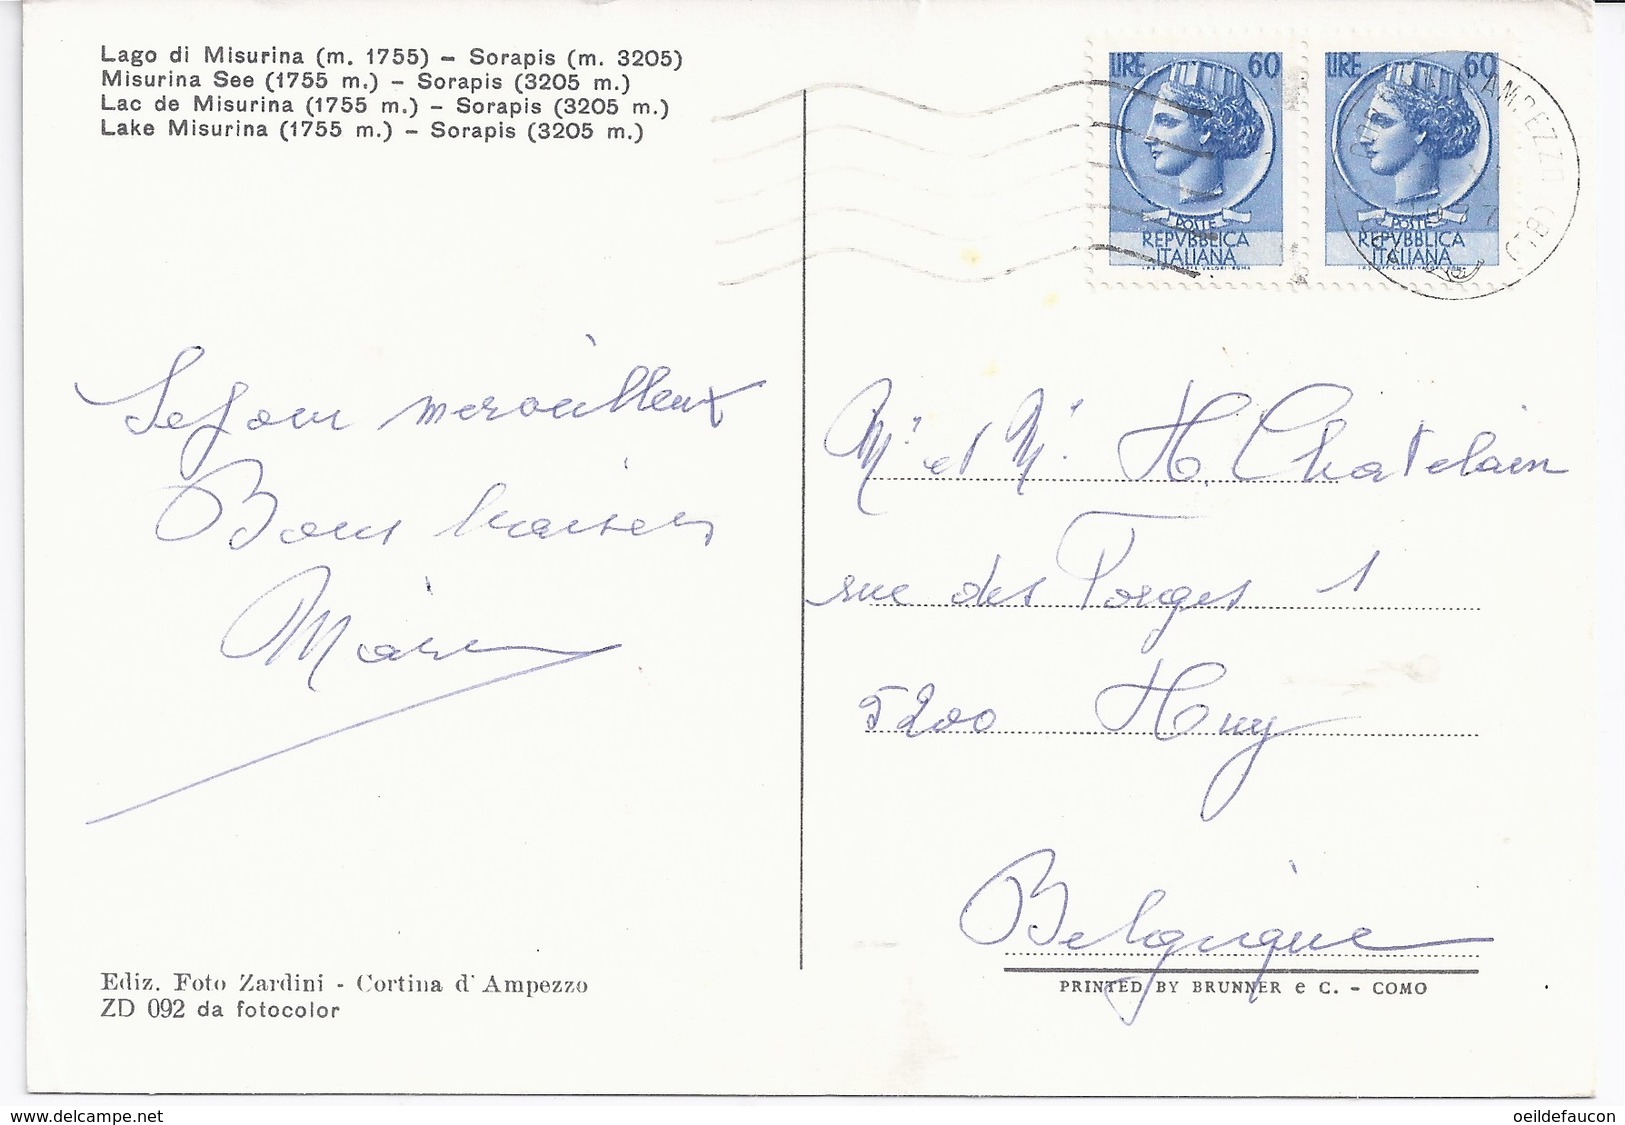 Lago di Misurina (m. 1755) – Sorapis (m. 3205)
Misurina See (1755 m.) – Sorapis (3205 m.)
Lac de Misurina (1755 m.) – Sorapis (3205 m.)
Lake Misurina (1755 m.) – Sorapis (3205 m.)
LIRE 60
POSTE
REPVBBLICA
ITALIANA
LIRE 60
POSTE
REPVBBLICA
ITALIANA
Séjour merveilleux
Bons baisers
Mr et Me H. Chatelain
rue des Forges 1
5200 Huy
Belgique
Ediz. Foto Zardini - Cortina d'Ampezzo
ZD 092 da fotocolor
PRINTED BY BRUNNER e C. - COMO
www.delcampe.net
oeildefaucon